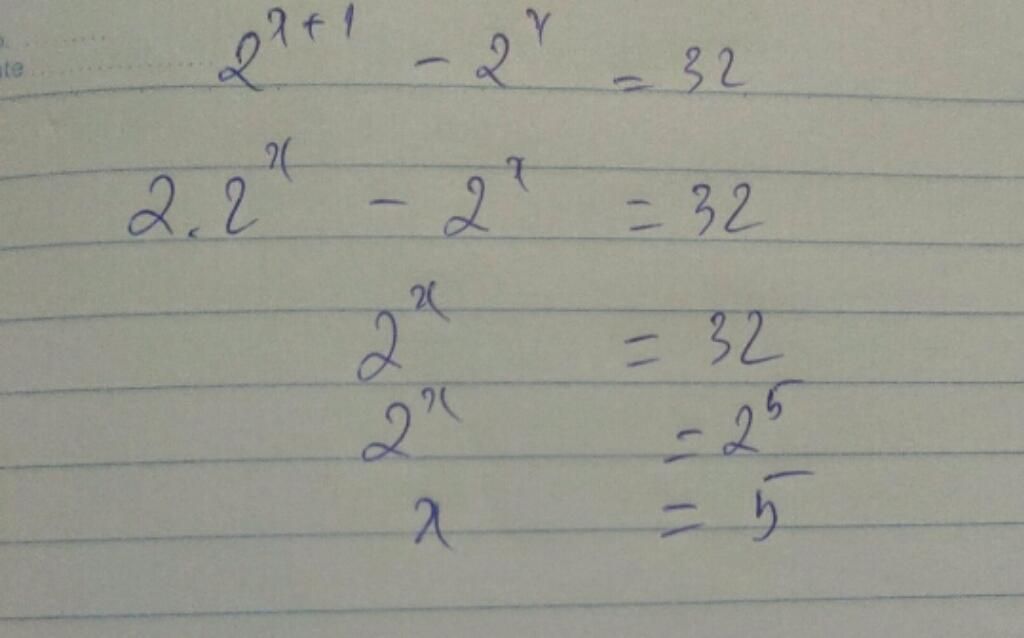 ate
2^{x+1} - 2^x = 32
2 . 2^x - 2^x = 32
2^x = 32
2^x = 2^5
x = 5